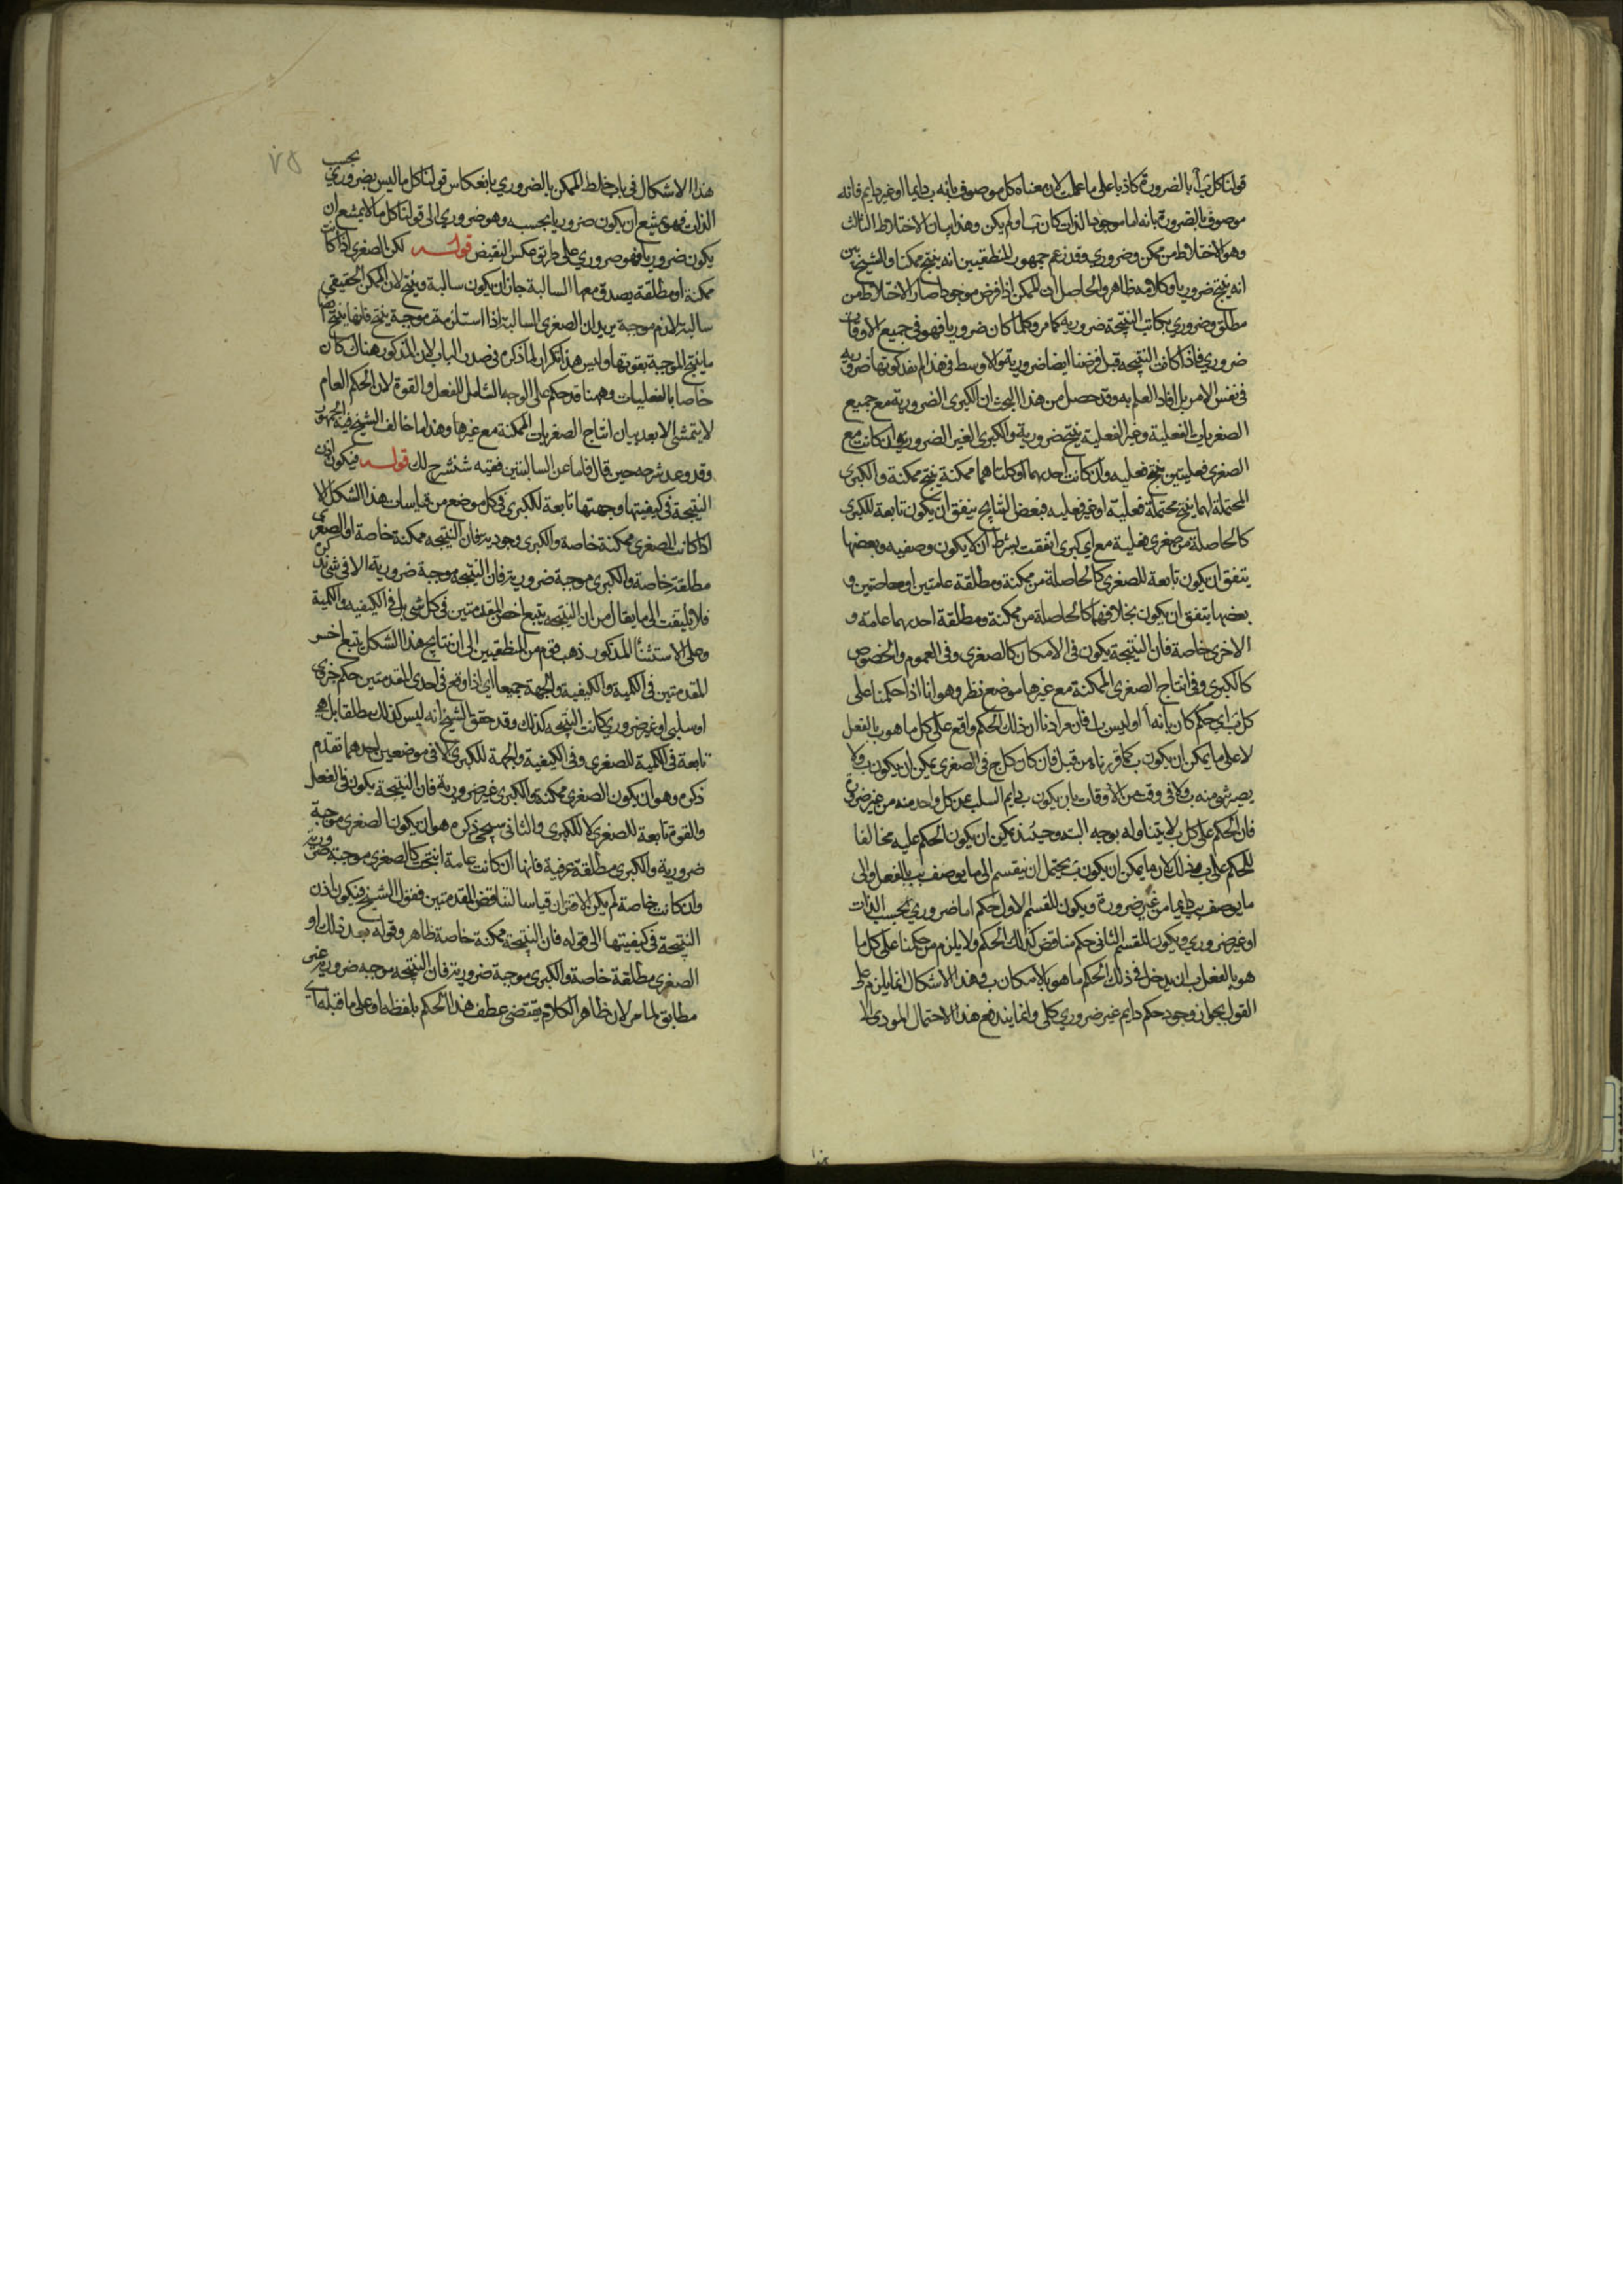 قولنا كل ب آ بالضرورة كاذبا على ما علمت لان معناه كل موصوف بانه ب دايما او غير دايم فانه
موصوف بالضرورة بانه اما موجود الذات كان ب او لم يكن وهذا بيان الاختلاط الثالث
وهو الاختلاط من ممكن وضروري وقد زعم جمهور المنطقيين انه ينتج ممكنا والشيخ بين
انه ينتج ضروريا وكلامه ظاهر والحاصل ان الممكن اذا فرض موجودا صار الاختلاط من
مطلق وضروري فكانت النتيجة ضرورية كما مر وكلما كان ضروريا فهو في جميع الاوقات
ضروري فاذا كانت النتيجة قبل فرضنا ايضا ضرورية والاوسط في هذا لم يفد كونها ضرورية
في نفس الامر بل افاد العلم به وقد حصل من هذا البحث ان الكبرى الضرورية مع جميع
الصغريات الفعلية وغير الفعلية ينتج ضرورية والكبرى الغير الضرورية ان كانت مع
الصغرى فعليتين ينتج فعليه وان كانت احديهما او كلتاهما ممكنة ينتج ممكنة والكبرى
المحتملة لهما ينتج محتملة فعلية او غير فعليه فبعض النتايج يتفق ان يكون تابعة للكبرى
كالحاصلة من صغرى فعلية مع اي كبرى اتفقت بشرط ان لا يكون وصفيه وبعضها
يتفق ان يكون تابعة للصغرى كالحاصلة من ممكنة ومطلقة عامتين او خاصتين و
بعضها يتفق ان يكون بخلافهما كالحاصلة من ممكنة ومطلقة احديهما عامة و
الاخرى خاصة فان النتيجة يكون في الامكان كالصغرى وفي العموم والخصوص
كالكبرى وفي انتاج الصغرى الممكنة مع غيرها موضع نظر وهو انا اذا حكمنا على
كل ب اي حكم كان بانه آ او ليس با فان مرادنا ان ذلك الحكم واقع على كل ما هو ب بالفعل
لا على ما يمكن ان يكون ب كما قررناه من قبل فان كان كل ج في الصغرى يمكن ان يكون ب ولا
يصير شي منه ب ولا في وقت من الاوقات بان يكون ب دايم السلب عن كل واحد منه من غير ضرورة
فان الحكم على كل ب لا يتناوله بوجه البته وحينئذ يمكن ان يكون الحكم عليه مخالفا
للحكم على ب وذلك لان ما يمكن ان يكون ب يحتمل ان ينقسم الى ما يوصف بب بالفعل والى
ما يوصف بب دايما من غير ضرورة ويكون للقسم الاول حكم اما ضروري بحسب الذات
او غير ضروري ويكون للقسم الثاني حكم مناقض لذلك الحكم ولا يلزم من حكمنا على كل ما
هو بالفعل ب ان يدخل في ذلك الحكم ما هو بالامكان ب وهذا الاشكال انما يلزم على
القول بجواز وجود حكم دايم غير ضروري كلي وانما يندفع هذا الاحتمال المودي الى
هذا الاشكال في باب خلط الممكن بالضروري بانعكاس قولنا كل ما ليس بضروري بحسب
الذات فهو يمتنع ان يكون ضروريا بحسبه وهو ضروري الى قولنا كل ما لا يمتنع ان
يكون ضروريا فهو ضروري على طريق عكس النقيض قوله لكن الصغرى اذا كانت
ممكنة او مطلقة يصدق معها السالبة جاز ان يكون سالبة وينتج لان الممكن الحقيقي
سالبة لازم موجبة يريد ان الصغرى السالبة اذا استلزمت موجبة ينتج فانها ينتج ايضا
ما ينتج الموجبة بقوتها وليس هذا تكرارا لما ذكره في صدر الباب لان المذكور هناك كان
خاصا بالفعليات وههنا قد حكم على الوجه الشامل للفعل والقوة لان الحكم العام
لا يتمشى الا بعد بيان انتاج الصغريات الممكنة مع غيرها وهذا مما خالف الشيخ فيه الجمهور
وقد وعد شرحه حين قال فاما عن السالبتين ففيه شنشرح لك قوله فيكون اذن
النتيجة في كيفيتها وجهتها تابعة للكبرى في كل موضع من قياسات هذا الشكل الا
اذا كانت الصغرى ممكنة خاصة والكبرى وجودية فان النتيجه ممكنة خاصة او الصغرى
مطلقة خاصة والكبرى موجبة ضرورية فان النتيجه موجبة ضرورية الا في شي نذكره
فلا تلتفت الى ما يقال من ان النتيجه يتبع اخس المقدمتين في كل شي بل في الكيفيه والكمية
وعلى الاستثنآ المذكور ذهب قوم من المنطقيين الى ان نتايج هذا الشكل يتبع اخس
المقدمتين في الكمية والكيفية والجهة جميعا اي اذا وقع في احدى المقدمتين حكم جزوي
او سلبي او غير ضروري كانت النتيجه كذلك وقد حقق الشيخ انه ليس كذلك مطلقا بل هي
تابعة في الكمية للصغرى وفي الكيفية والجهة للكبرى الا في موضعين احدهما تقدم
ذكره وهو ان يكون الصغرى ممكنة والكبرى غير ضرورية فان النتيجة يكون في الفعل
والقوة تابعة للصغرى لا للكبرى والثاني سيجي ذكره وهو ان يكون الصغرى موجبة
ضرورية والكبرى مطلقة عرفية فانها ان كانت عامة انتجت كالصغرى موجبة ضرورية
وان كانت خاصة لم يكن الاقتران قياسا لتناقض المقدمتين فقول الشيخ فيكون اذن
النتيجة في كيفيتها الى قوله فان النتيجة ممكنة خاصة ظاهر وقوله بعد ذلك او
الصغرى مطلقة خاصة والكبرى موجبة ضرورية فان النتيجه موجبه ضرورية غير
مطابق لما مر لان ظاهر الكلام يقتضي عطف هذا الحكم بلفظه او على ما قبله اي